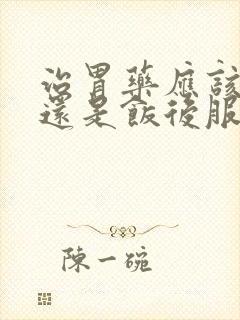 治胃藥應該
還是飯後服
陳一碗